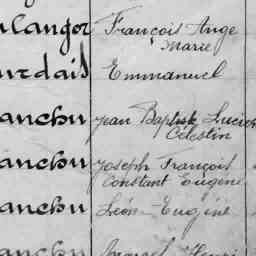 langor François Ange
Marie
urdais Emmanuel
anchu Jean Baptiste Lucien
Célestin
anchu Joseph François
Constant Eugène
anchu Léon Eugène
anchu Marcel Henri